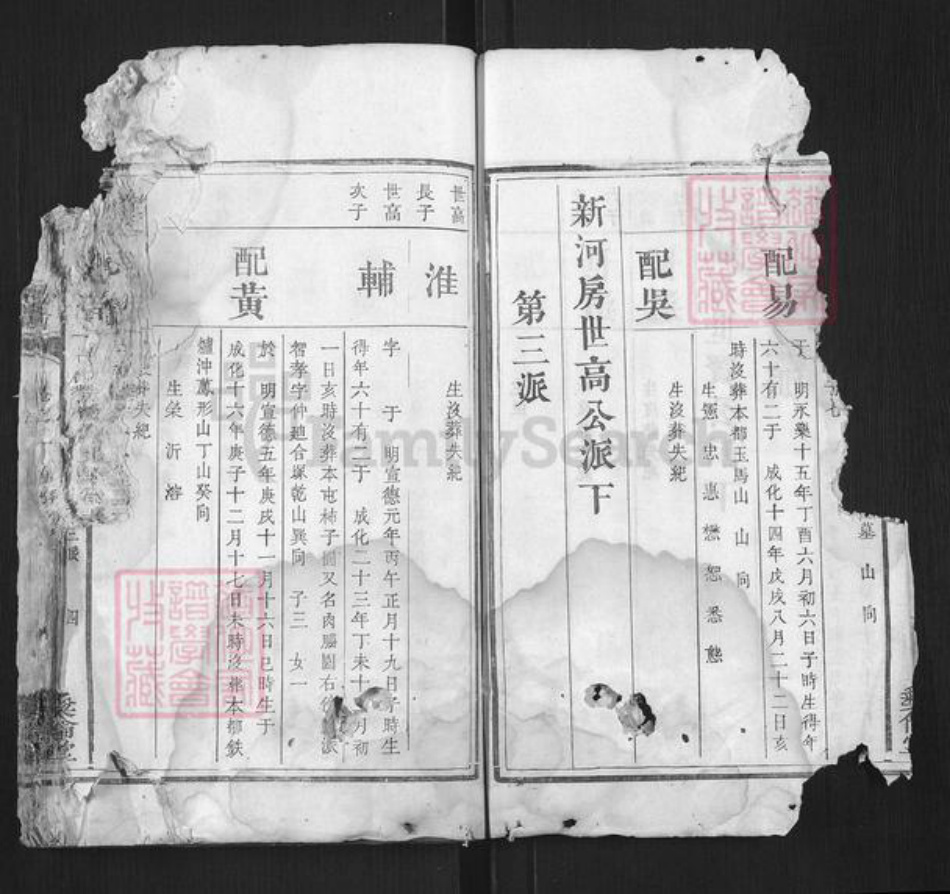 墓 山 向
配易
于 明永樂十五年丁酉六月初六日子時生得年
六十有二于 成化十四年戊戌八月二十二日亥
時沒葬本都玉馬山 山 向
生憲 忠 惠 懋 恕 悉 態
配吳
生沒葬失紀
新河房世高公派下
第三派
世高
長子
淮
生沒葬失紀
世高
次子
輔
字 于 明宣德元年丙午正月十九日子時生
得年六十有二于 成化二十三年丁未十 月初
一日亥時沒葬本屯柿子園又名肉 園右 派
智孝字仲廸合塚乾山巽向 子三 女一
配黃
於 明宣德五年庚戌十一月十六日巳時生于
成化十六年庚子十二月十七日未時沒葬本都鉄
爐沖萬形山丁山癸向
生榮 沂 溶
葬失紀
四
FamilySearch